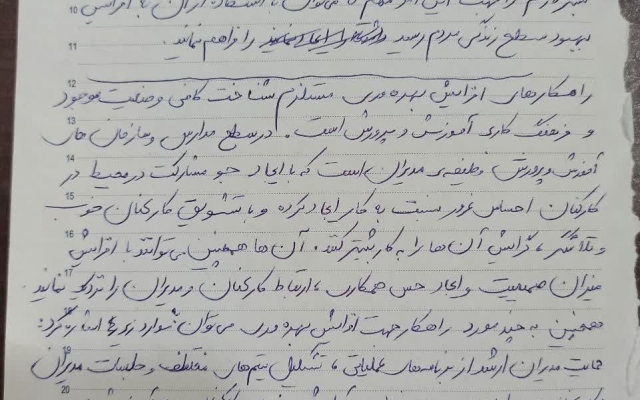 10
بهبود سطح زندگی مردم رسید را فراهم نمایند.
11
12
راهکارهای افزایش بهره وری مستلزم شناخت کافی وضعیت موجود
13
و فرهنگ کاری آموزش و پرورش است. در سطح مدارس و سازمان های
14
آموزش و پرورش، وظیفه ی مدیران است که با ایجاد جو مشارکت در محیط در
15
کارکنان احساس غرور نسبت به کار ایجاد کرده و با تشویق کارکنان خوب
16
و تلاشگر، گرایش آن ها را به کار بیشتر کنند. آن ها همچنین می توانند با افزایش
17
میزان صمیمیت و ایجاد حس همکاری، ارتباط کارکنان و مدیران را نزدیک نمایند
همچنین به چند مورد راهکار جهت افزایش بهره وری می توان موارد زیر را اشاره کرد:
19
حمایت مدیران ارشد از برنامه های عملیاتی، تشکیل تیم های مختلف و جلسات مدیران
20